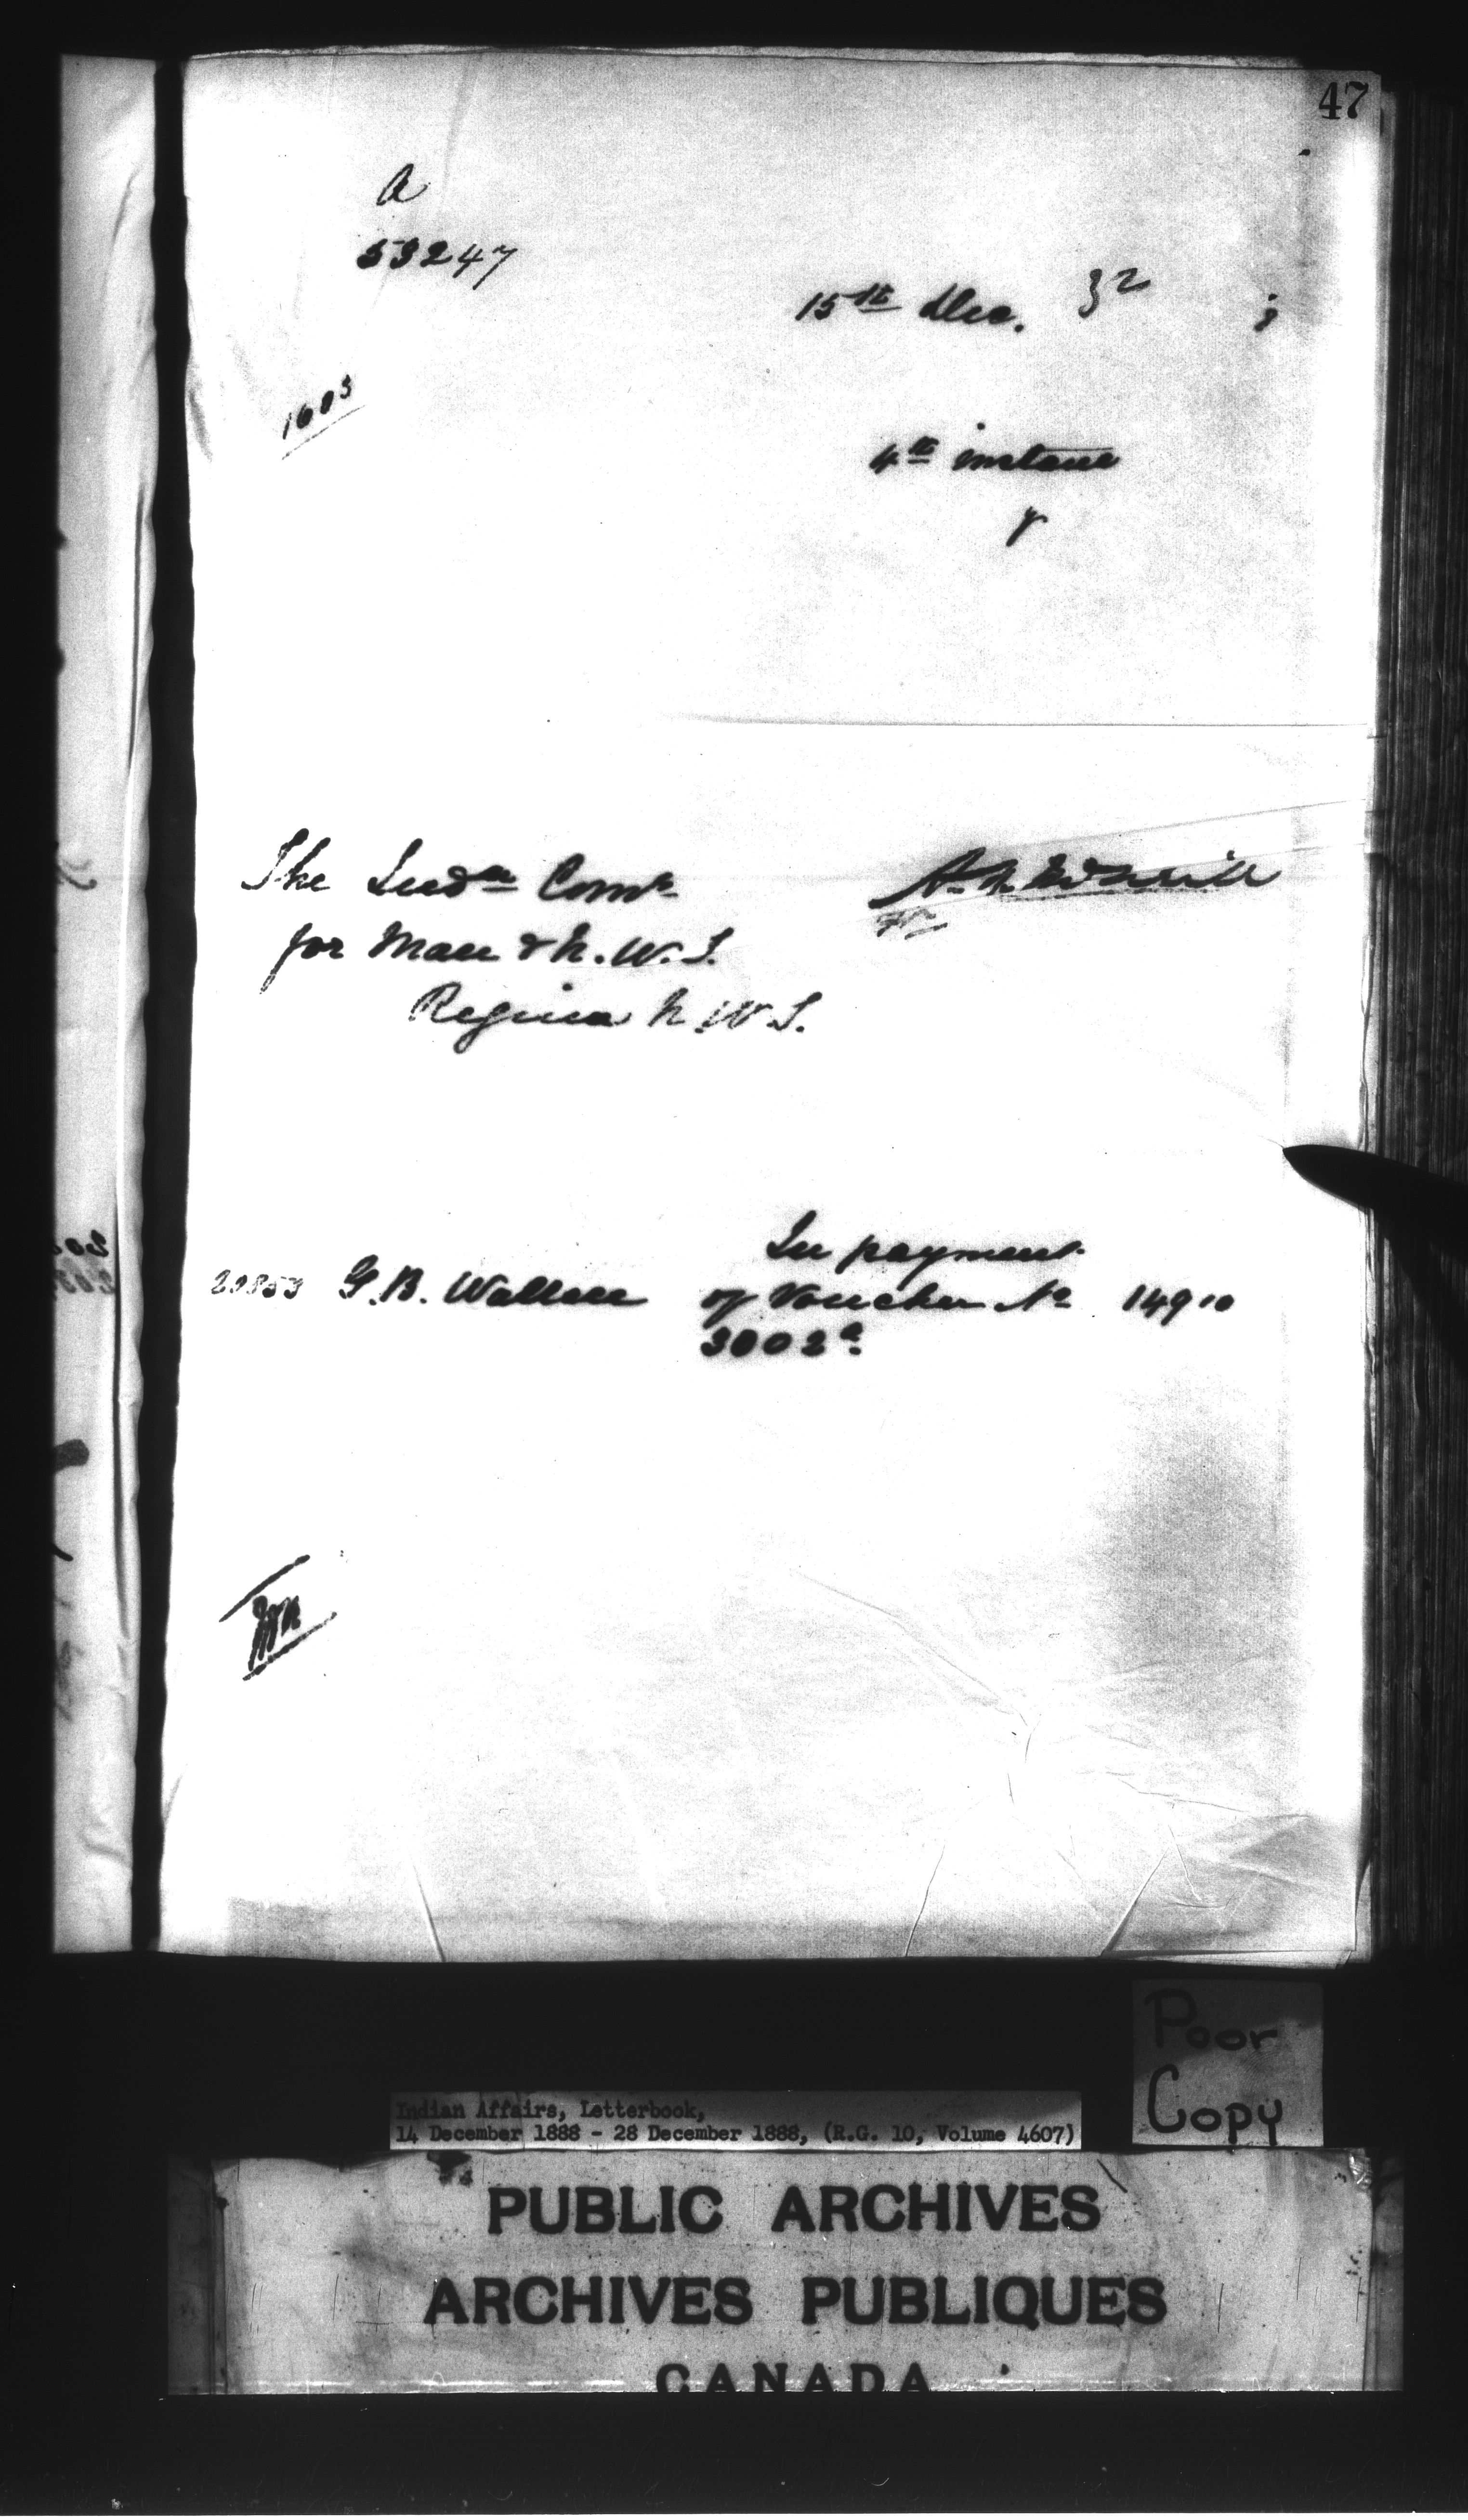 47
a
53247
15th Dec.
1603
4th instant
The Indn Comr
for Man & N.W.T.
Regina N.W.T.
In payment
G.B. Wallace of Voucher No 149 10
3002a
Poor
Copy
Indian Affairs, Letterbook,
14 December 1888 - 28 December 1888, (R.G. 10, Volume 4607)
PUBLIC ARCHIVES
ARCHIVES PUBLIQUES
CANADA